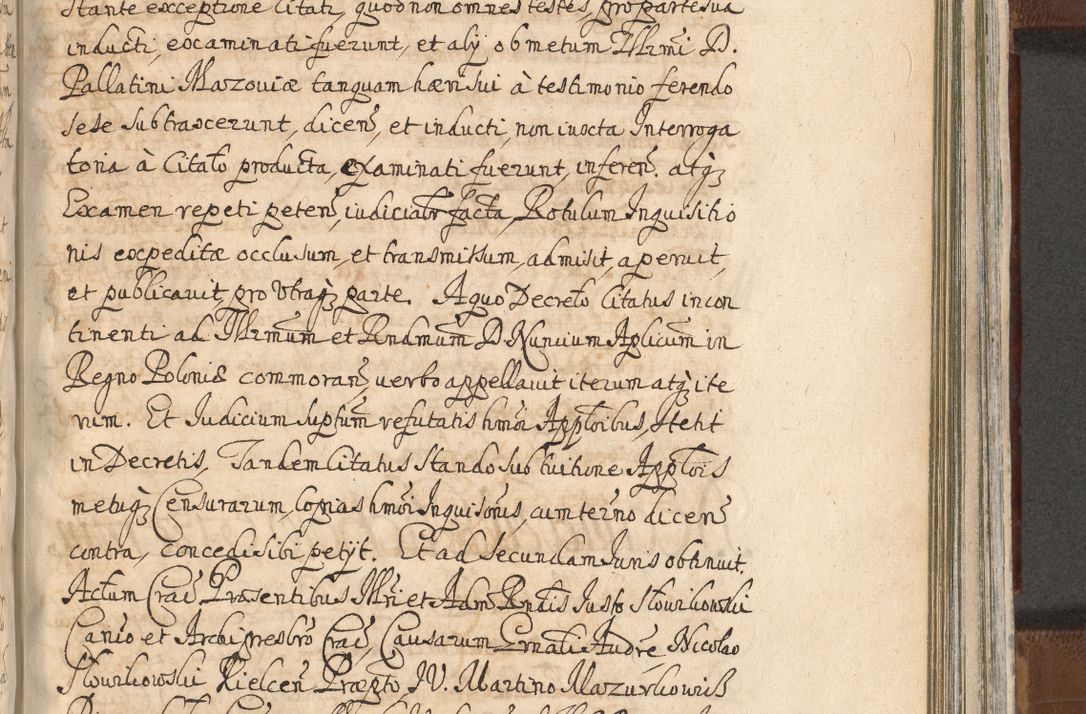 stante exceptione Citati, quod non omnes testes, pro parte sua
inducti, examinati fuerunt, et alÿ ob metum Illrmi D.
Pallatini Mazoviæ tanquam hæen sui à testimonio ferendo
sese subtraxerunt, dicen, et inducti, non iuxta Interroga
toria à Citato producta, examinati fuerunt, inferen. atq
Examen repeti peten, iudicialr facta, Rotulum Inquisitio
nis expeditæ occlusum, et transmissum, admisit, aperuit,
et publicavit, pro Utraq parte. A quo Decreto Citatus incon
tinenti ad Illrmum et Rndmum D. Nuncium Aplicum in
Regno Poloniæ commoran, verbo appellavit iterum atq ite
rum. Et Judicium suptum refutatis hmoi Applõibus, stetit
in Decretis, Tandem Citatus stando sub tuitione Applõis
metuq Censurarum, Copias hmoi Inquisõnis, cum termo dicen
contra, concedi sibi petÿt. Et ad secundam Juris obtinuit.
Actum Crac Præsentibus Illri et Adm Rndis Justo Słowikowski
Canco et Archipresbro Crac, Causarum Ernali Audre, Nicolao
Słowikowski Kielcen Præpto, IV. Martino Mazurkowiß